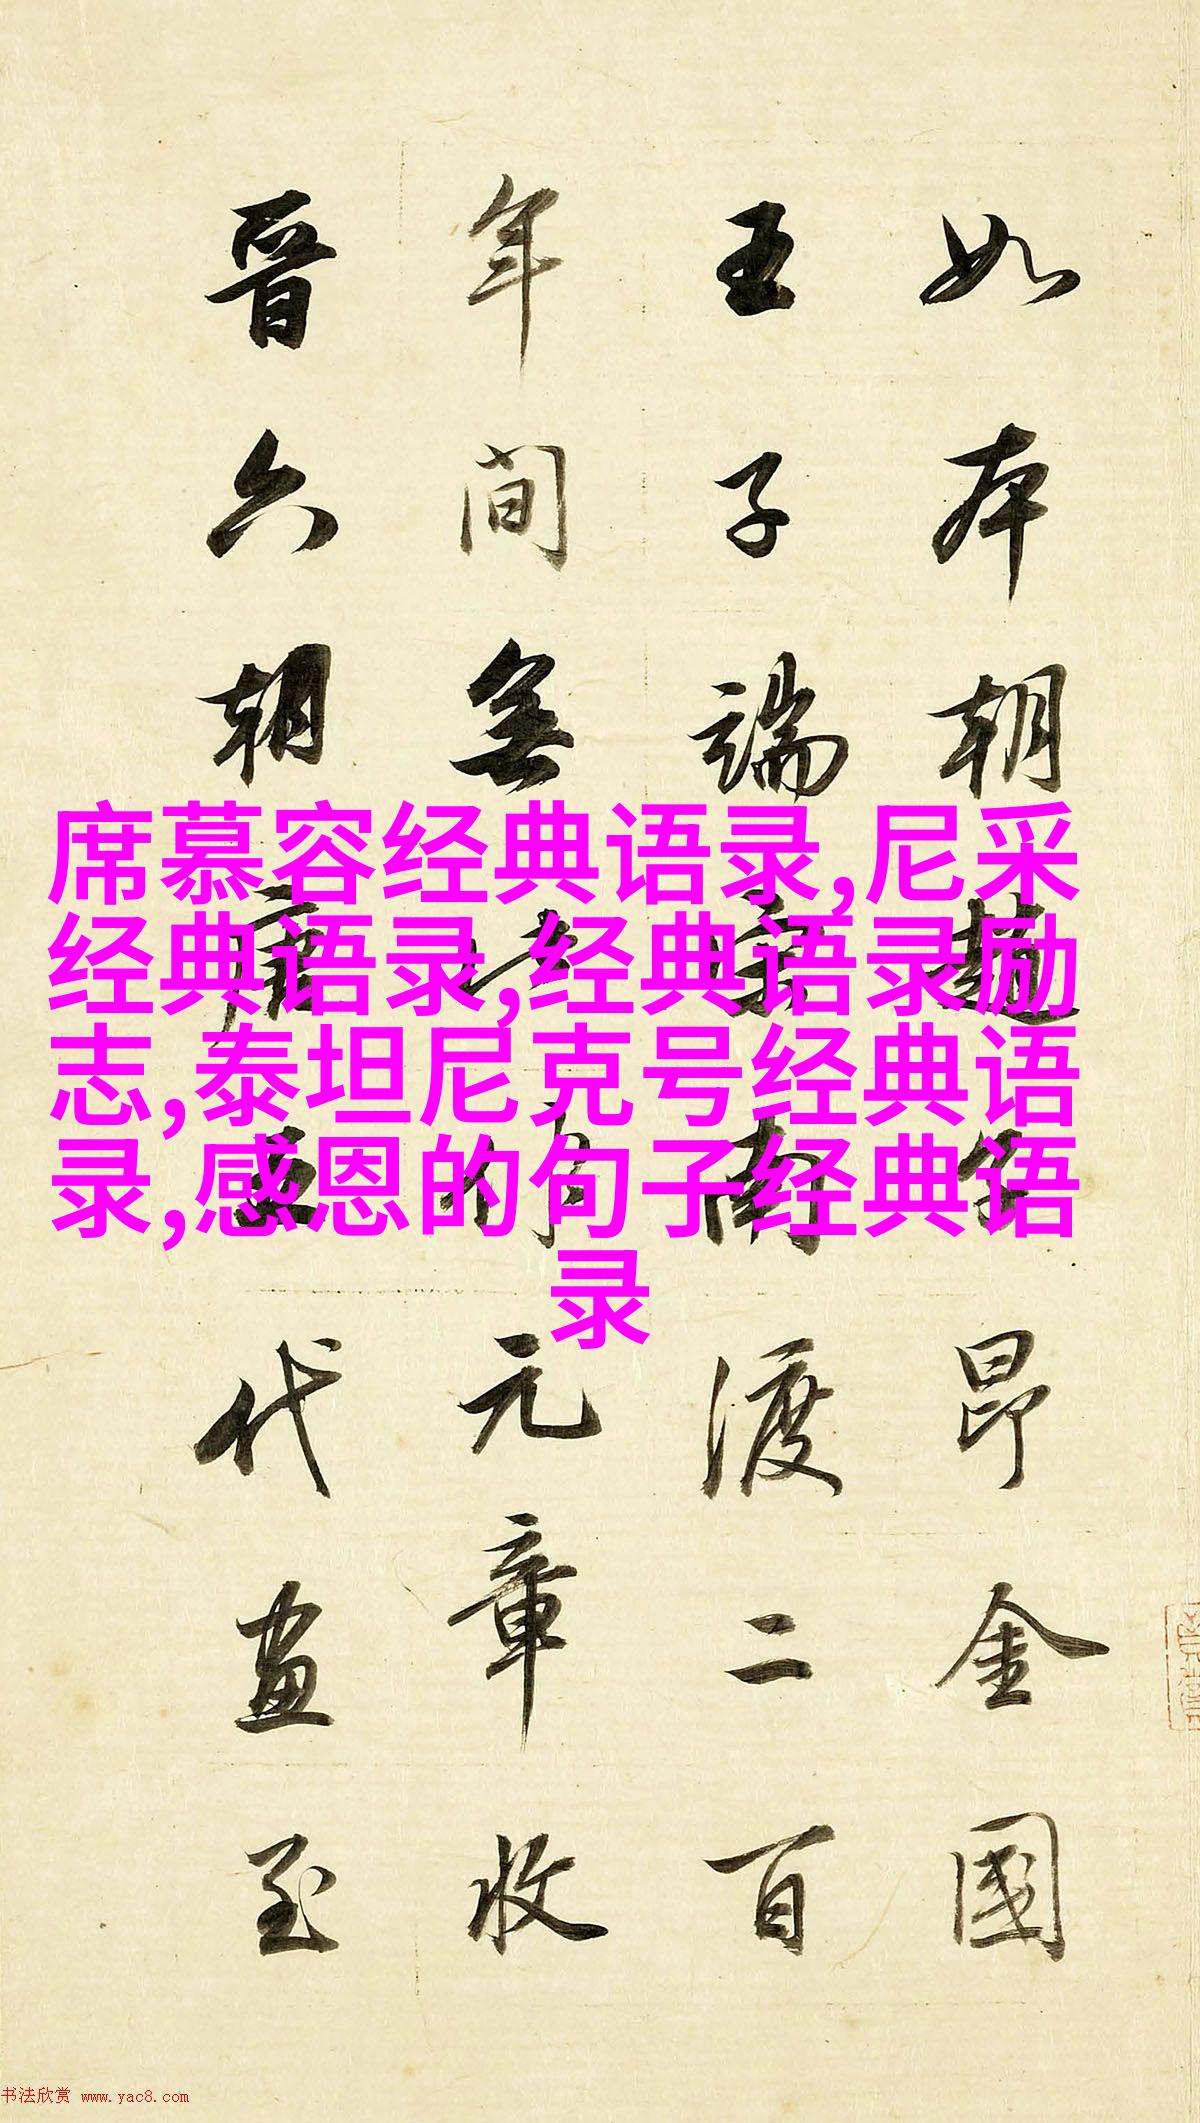 如本朝趙子昂金國
王子端宋南渡二百
年間無此作元章收
晉六朝唐五代畫至
席慕容经典语录,尼采
经典语录,经典语录励
志,泰坦尼克号经典语
录,感恩的句子经典语
录
书法欣赏 www.yac8.com